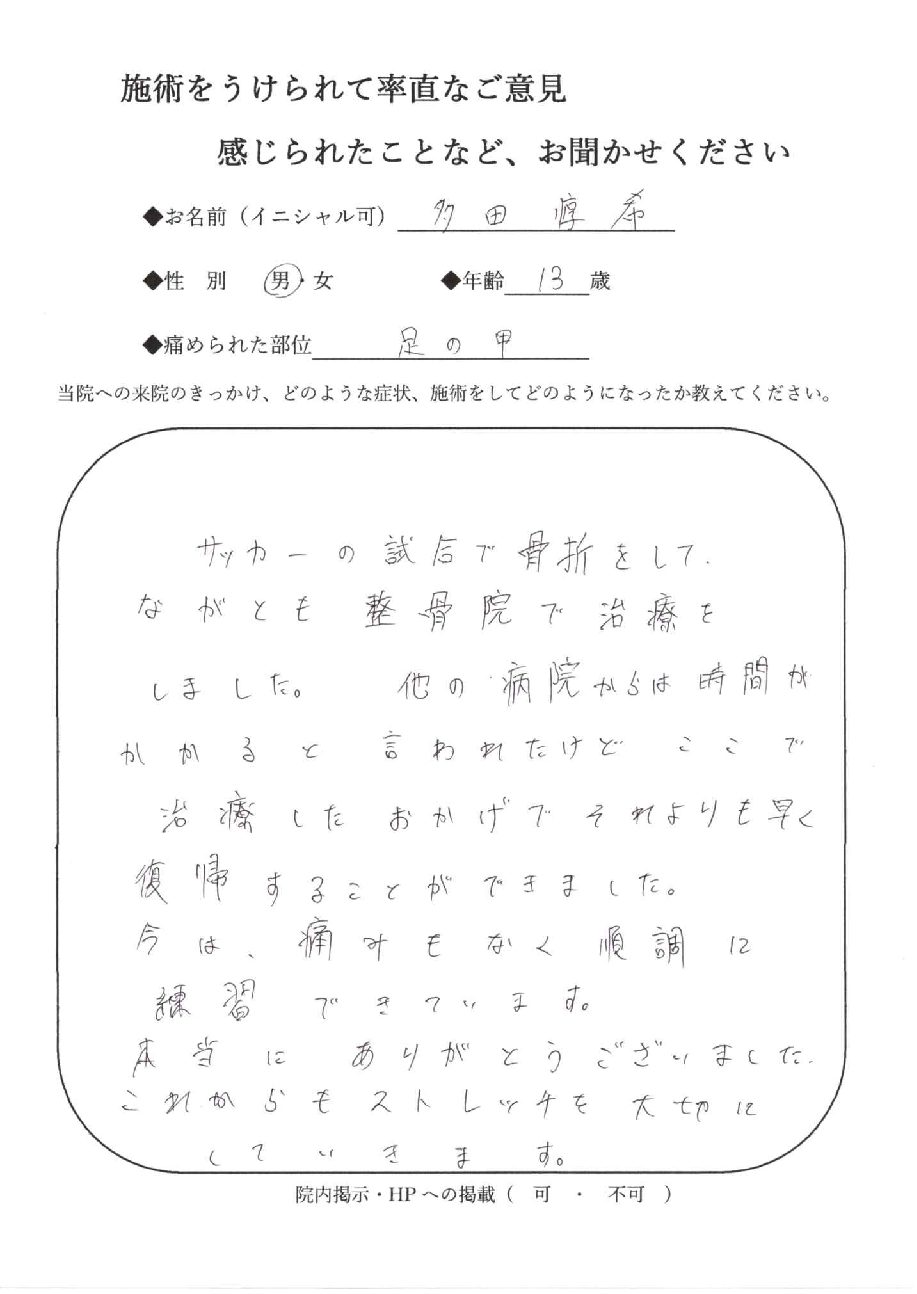 施術をうけられて率直なご意見
感じられたことなど、お聞かせください
◆お名前（イニシャル可） 多田 惇希
◆性 別 男・女 ◆年齢 13 歳
◆痛められた部位 足の甲
当院への来院のきっかけ、どのような症状、施術をしてどのようになったか教えてください。
サッカーの試合で骨折をして、
ながとも整骨院で治療を
しました。 他の病院からは時間が
かかると言われたけど ここで
治療したおかげでそれよりも早く
復帰することができました。
今は、痛みもなく順調に
練習できています。
本当に ありがとうございました。
これからもストレッチを大切に
していきます。
院内掲示・HPへの掲載（ 可 ・ 不可 ）